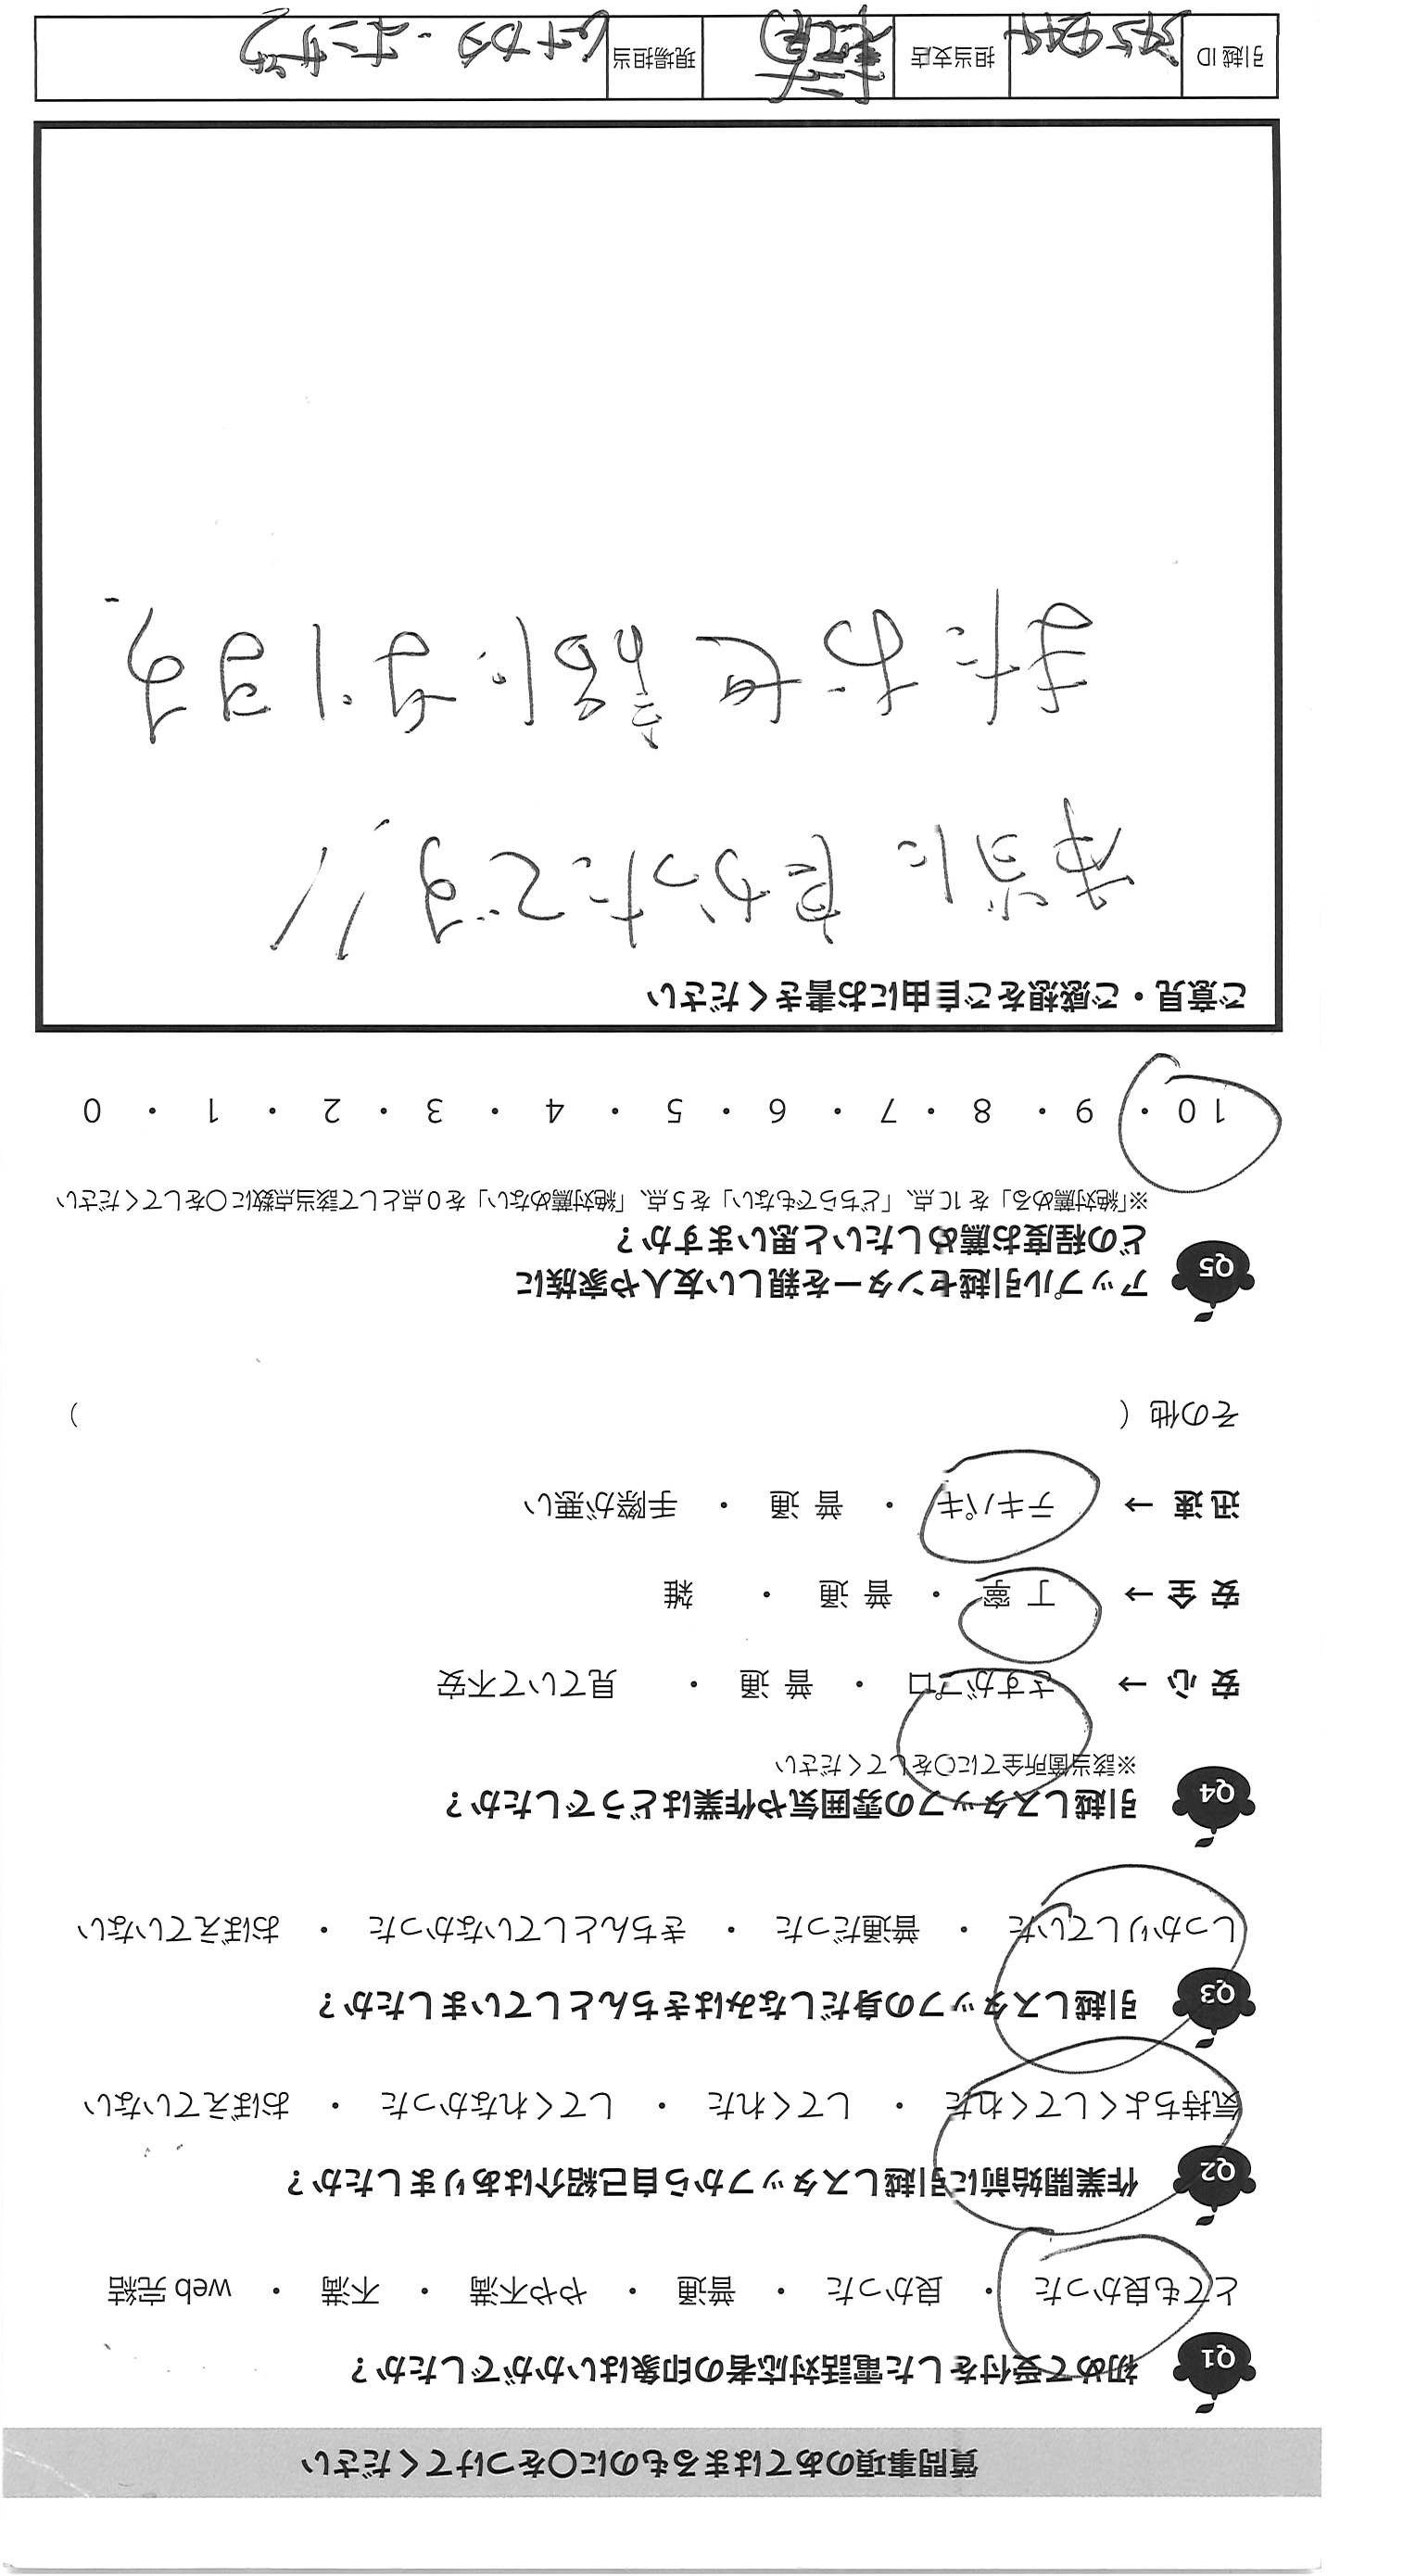 質問事項のあてはまるものに○をつけてください
Q1 初めて受付をした電話対応者の印象はいかがでしたか？
とても良かった ・ 良かった ・ 普通 ・ やや不満 ・ 不満 ・ web 完結
Q2 作業開始前に引越しスタッフから自己紹介はありましたか？
気持ちよくしてくれた ・ してくれた ・ してくれなかった ・ おぼえていない
Q3 引越しスタッフの身だしなみはきちんとしていましたか？
しっかりしていた ・ 普通だった ・ きちんとしていなかった ・ おぼえていない
Q4 引越しスタッフの雰囲気や作業はどうでしたか？
※該当箇所全てに○をしてください
安 心 → さすがプロ ・ 普 通 ・ 見ていて不安
安 全 → 丁 寧 ・ 普 通 ・ 雑
迅 速 → テキパキ ・ 普 通 ・ 手際が悪い
その他（ ）
Q5 アップル引越センターを親しい友人や家族に
どの程度お薦めしたいと思いますか？
※「絶対薦める」を10点、「どちらでもない」を5点、「絶対薦めない」を0点として該当点数に○をしてください
10 ・ 9 ・ 8 ・ 7 ・ 6 ・ 5 ・ 4 ・ 3 ・ 2 ・ 1 ・ 0
ご意見・ご感想をご自由にお書きください
本当に良かったです!!
またお世話になります
引越 ID 担当支店 現場担当